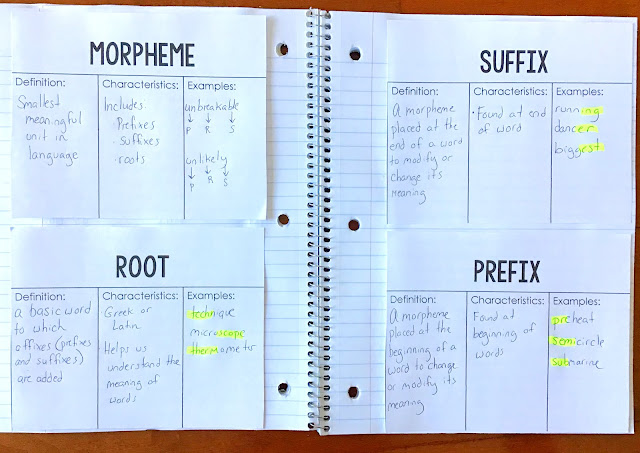 MORPHEME
Definition:
Smallest
meaningful
unit in
language
Characteristics:
Includes
· Prefixes
· Suffixes
· roots
Examples:
unbreakable
↓ ↓ ↓
P R S
unlikely
↓ ↓ ↓
P R S
ROOT
Definition:
a basic word
to which
affixes (prefixes
and suffixes)
are added
Characteristics:
· Greek or
Latin
· Helps us
understand the
meaning of
words
Examples:
technique
microscope
thermometer
SUFFIX
Definition:
A morpheme
placed at the
end of a word
to modify or
change its
meaning
Characteristics:
· Found at end
of word
Examples:
running
dancer
biggest
PREFIX
Definition:
A morpheme
placed at the
beginning of a
word to change
or modify its
meaning
Characteristics:
Found at
beginning of
words
Examples:
preheat
semicircle
submarine